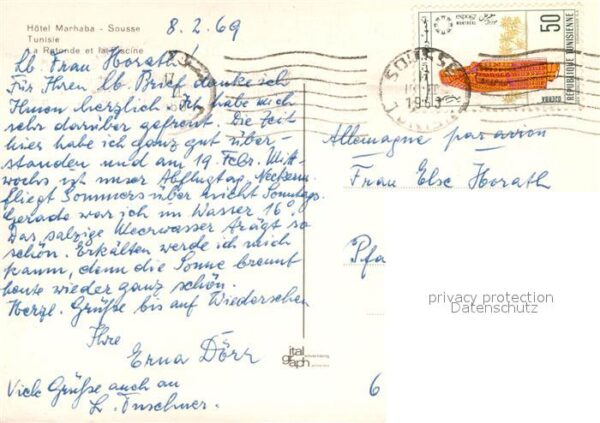 Hôtel Marhaba - Sousse
Tunisie
La Rotonde et la Piscine
8.2.69
Lb. Frau Horath!
Für Ihren lb. Brief danke ich
Ihnen herzlich. Ich habe mich
sehr darüber gefreut. Die Zeit
hier habe ich ganz gut über-
standen und am 19. Febr. Mitt-
wochs ist unser Abflugtag.
fliegt Sommers über nicht Sonntags.
Gerade war ich im Wasser 16°.
Das salzige Meerwasser trägt so
schön. Erkälten werde ich mich
kaum, denn die Sonne brennt
heute wieder ganz schön.
Herzl. Grüße bis auf Wiedersehen
Ihre
Erna Dörr
Viele Grüße auch an
expo67
MONTREAL
50
REPUBLIQUE TUNISIENNE
SOUSSE
Allemagne par avion
Frau Else Horath
Pfa
6
privacy protection
Datenschutz
ital
graph